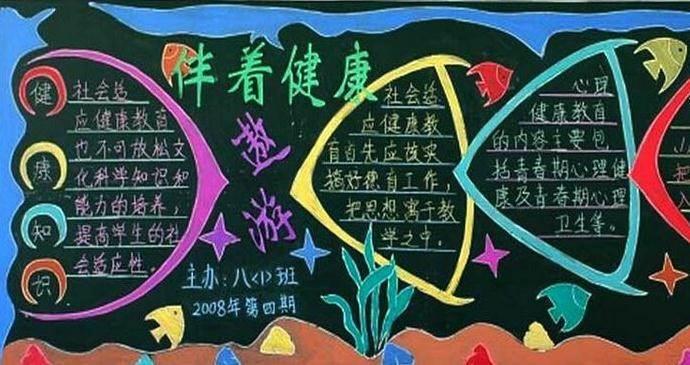 伴着健康
遨游
健
康
知
识
社会适
应健康教育
也不可放松文
化科学知识和
能力的培养，
提高学生的社
会适应性。
主办：八<1>班
2008年第四期
社会适
应健康教
育首先应该实
搞好德育工作，
把思想寓于教
学之中。
心理
健康教育
的内容主要包
括青春期心理健
康及青春期心理
卫生等。